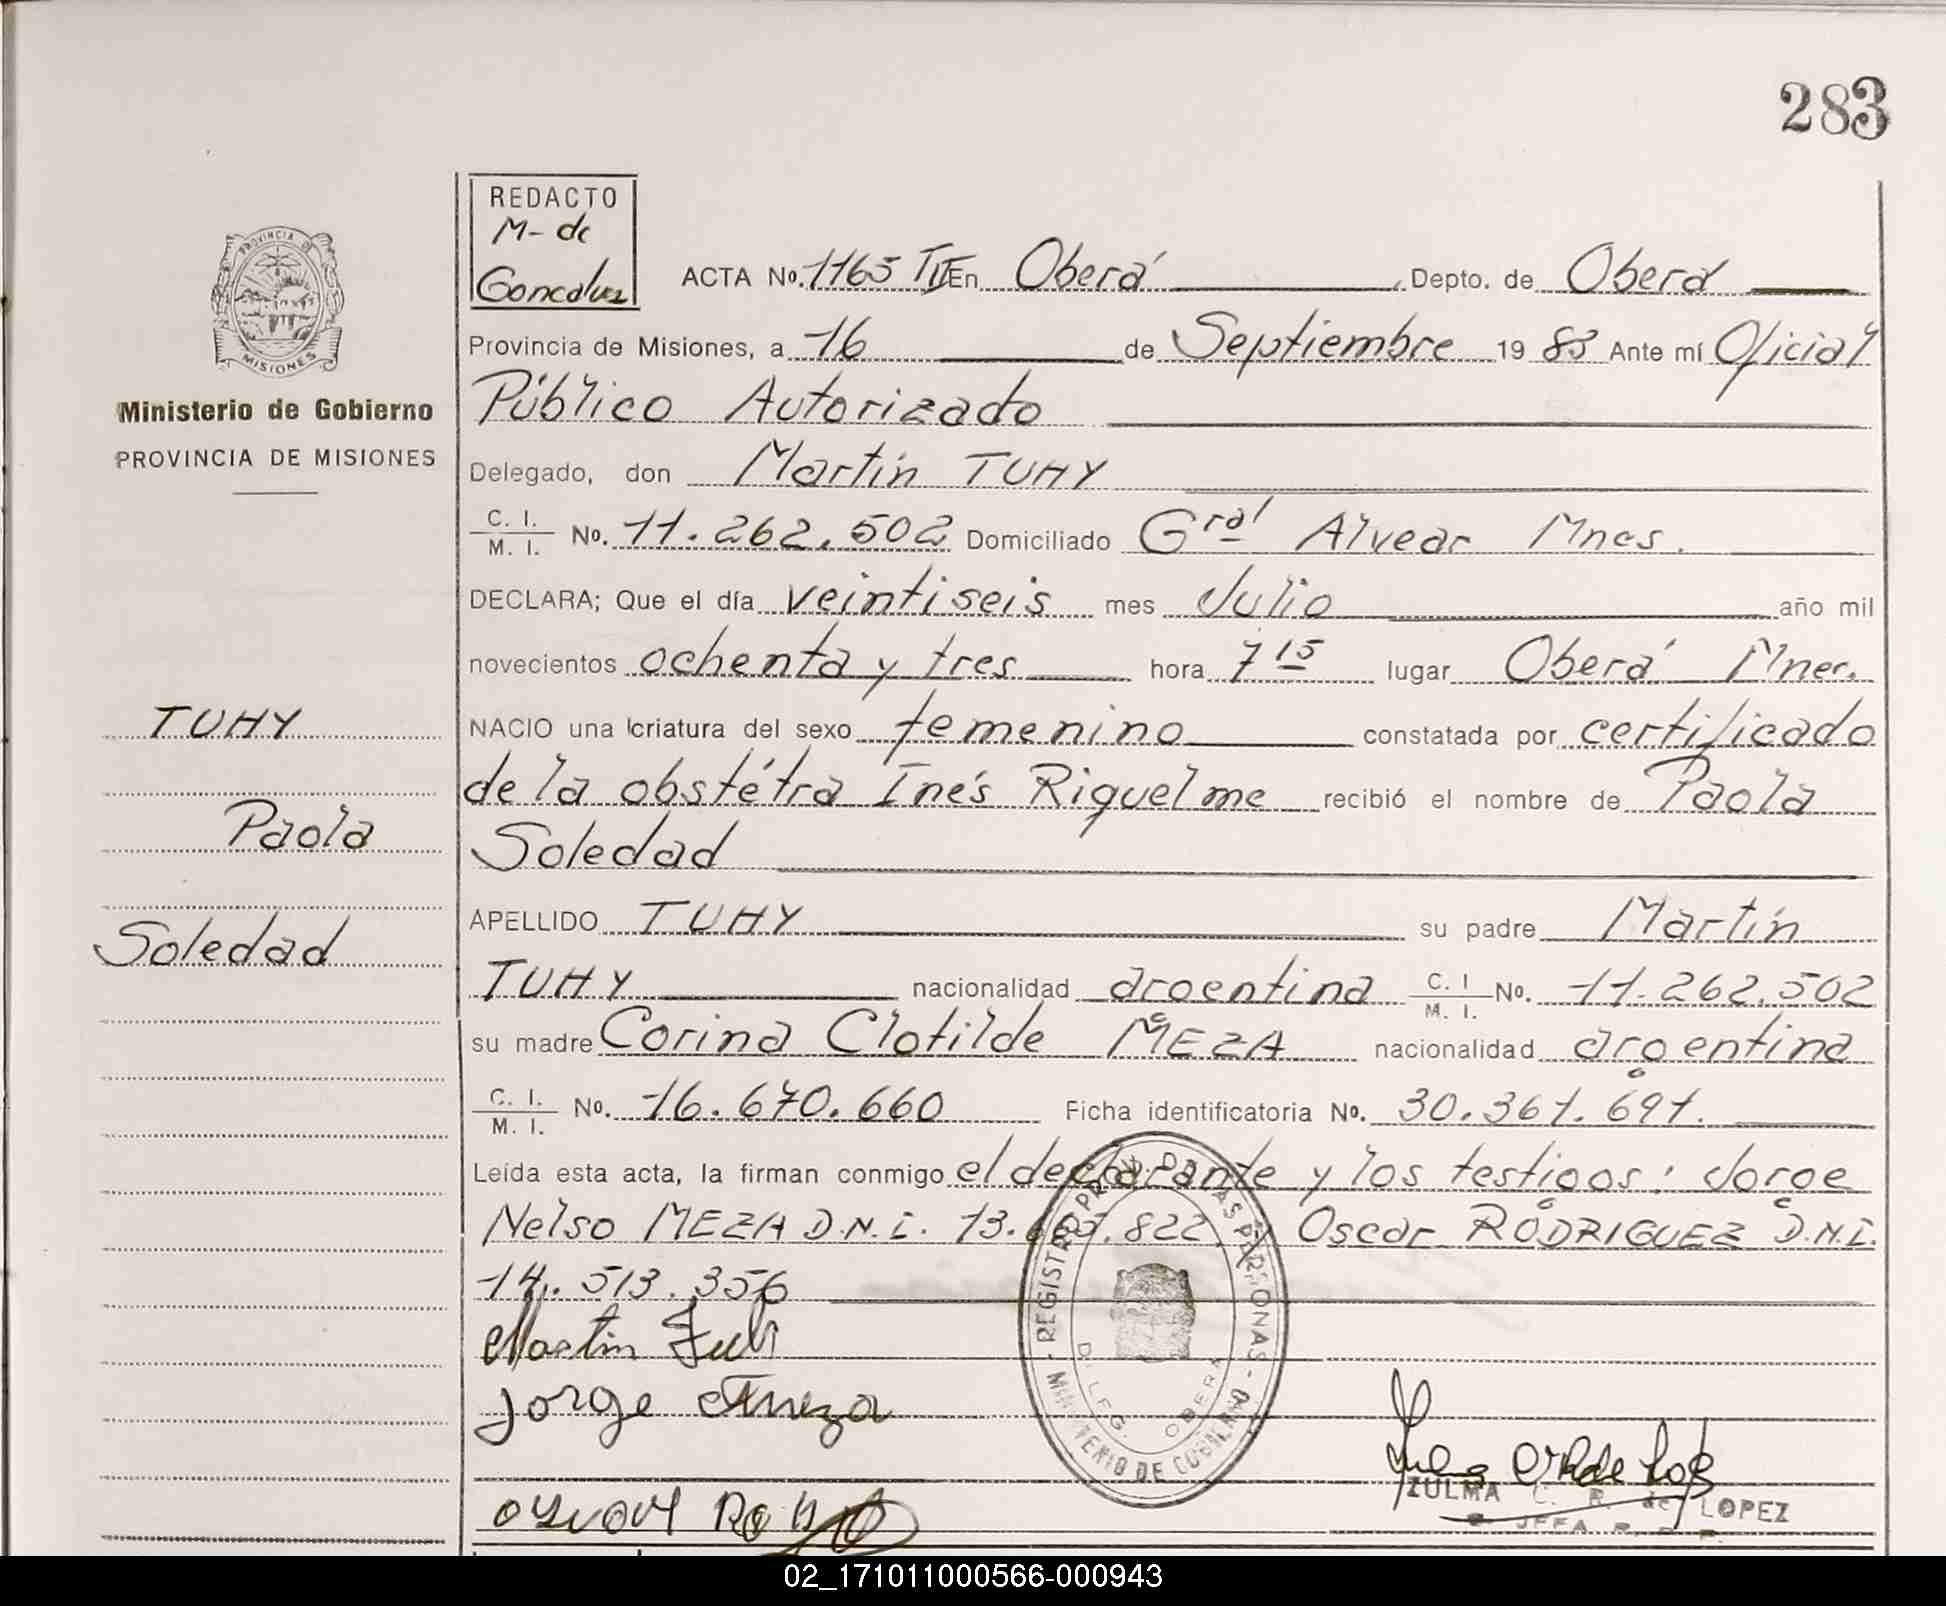 283
REDACTO
M- de
Goncalvez
PROVINCIA DE
MISIONES
Ministerio de Gobierno
PROVINCIA DE MISIONES
ACTA No. 1165 TII En Oberá, Depto. de Oberá
Provincia de Misiones, a 16 de Septiembre 19 83 Ante mí Oficial
Público Autorizado
Delegado, don Martín TUHY
C. I. M. I. No. 11.262.502 Domiciliado Gral Alvear Mnes.
DECLARA; Que el día veintiseis mes Julio año mil
novecientos ochenta y tres hora 7 15 lugar Oberá Mnes.
NACIO una criatura del sexo femenino constatada por certificado
de la obstétra Inés Riquelme recibió el nombre de Paola
Soledad
APELLIDO TUHY su padre Martín
TUHY nacionalidad argentina C. I M. I. No. 11.262.502
su madre Corina Clotilde MEZA nacionalidad argentina
C. I. M. I. No. 16.670.660 Ficha identificatoria No. 30.361.691.
Leída esta acta, la firman conmigo el declarante y los testigos: Jorge
Nelso MEZA D.N.I. 13. .822 y Oscar RODRIGUEZ D.N.I.
14.513.356
TUHY
Paola
Soledad
Martin
Jorge Meza
REGISTRO PROV. DE LAS PERSONAS
MINISTERIO DE GOBIERNO
DELEG. OBERA
ZULMA C. R. de LOPEZ
JEFA R.
02_171011000566-000943